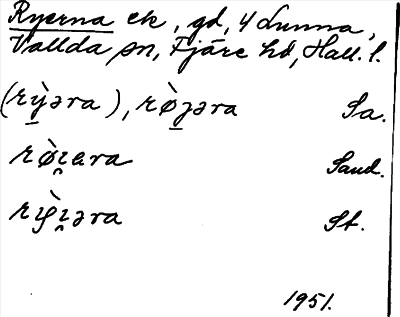 Ryerna ek, gd, 4 Lunna,
Vallda sn, Fjäre hd, Hall. l.
(rỳ̠əra), rø̠̀ȷəra Sa.
rø̀ı̯əra Sand.
St.
1951.